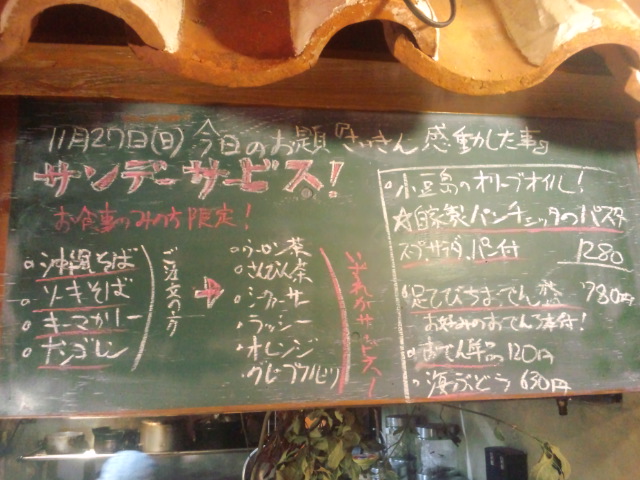 11月27日(日) 今日のお題『さいきん感動した事』
サンデーサービス!
お食事のみの方限定!
沖縄そば
ソーキそば
キーマカリー
ナシゴレン
ご注文の方
→
ウーロン茶
さんぴん茶
シークヮーサー
ラッシー
オレンジ
グレープフルーツ
いずれかサービス!
小豆島のオリーブオイル!
☆自家製パンチェッタのパスタ
スープ、サラダ、パン付 1280
足てびちおでん 780円
お好みのおでん 付!
おでん単品 120円
海ぶどう 630円